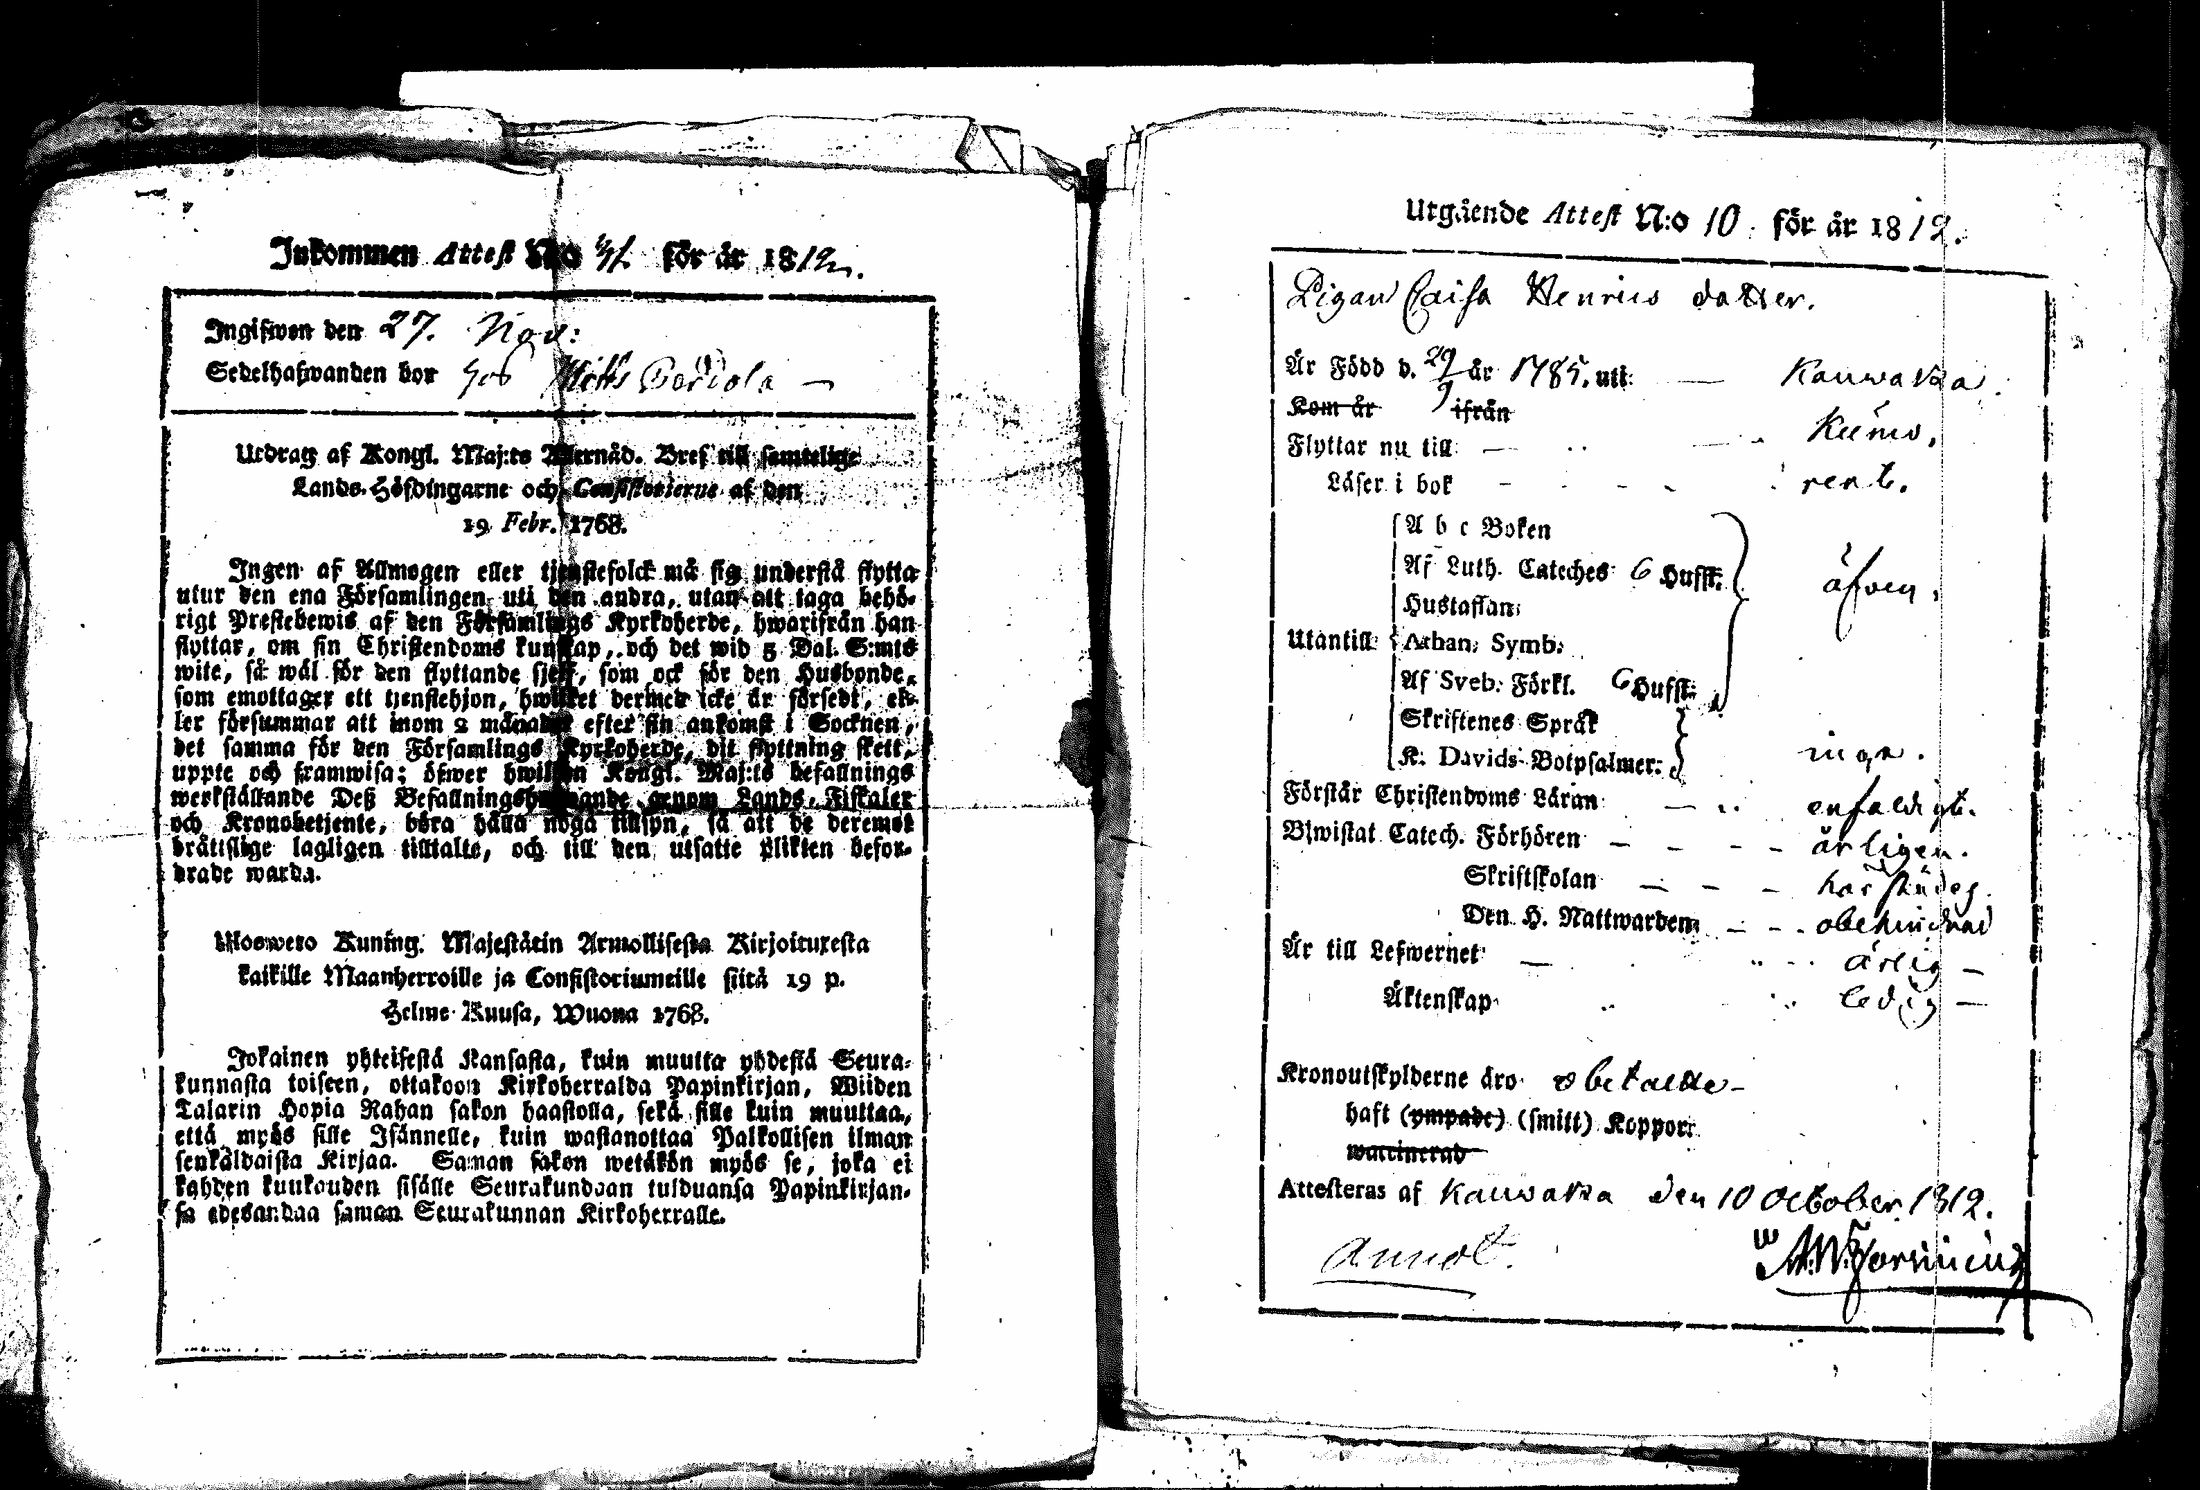 Inkommen Attest N:o 31. för år 1812.
Ingifwen den 27. Nov:
Sedelhafwanden bor hos Matts
Utdrag af Kongl. Maj:ts Wernåd. Bref till samtelige
Lands-Höfdingarne och Consistorierne af den
19 Febr. 1768.
Ingen af Allmogen eller tjenstefolck må sig understå flytta
utur den ena Församlingen uti den andra, utan att taga behö-
rigt Prestebewis af den Församlings Kyrkoherde, hwarifrån han
flyttar, om sin Christendoms kunskap, och det wid 5 Dal. S:mts
wite, så wäl för den flyttande sjelf, som ock för den Husbonde,
som emottager ett tjenstehjon, hwilket dermed icke är försedt, el-
ler försummar att inom 2 månader efter sin ankomst i Socknen,
det samma för den Församlings Kyrkoherde, dit flyttning skett,
uppte och framwisa; öfwer hwilken Kongl. Maj:ts befallnings
werkställande Deß Befallningshafwande genom Lands-Fiskaler
och Kronobetjente, böra hålla noga tillsyn, så att de deremot
bråttslige lagligen tilltalte, och till den utsatte plikten befor-
drade warda.
Uloswero Kuning. Majestätin Armollisesta Kirjoituxesta
kaikille Maanherroille ja Consistoriumeille siitä 19 p.
Helme Kuusa, Wuona 1768.
Jokainen yhteisestä Kansasta, kuin muutta yhdestä Seura-
kunnasta toiseen, ottakoon Kirkoherralda Papinkirjan, Wiiden
Talarin Hopia Rahan sakon haastolla, sekä sille kuin muuttaa,
että myös sille Isännelle, kuin wastanottaa Palkollisen ilman
senkaldaista Kirjaa. Saman sakon wetäkön myös se, joka ei
kahden kuukauden sisälle Seurakundaan tulduansa Papinkirjan-
sa edesandaa saman Seurakunnan Kirkoherralle.
Utgående Attest N:o 10. för år 1812.
Pigan Caisa Henrics dotter.
Är Född d. 29/9 år 1785. uti Kauwatsa.
Kom år ifrån
Flyttar nu till Kumo.
Läser i bok rent.
A b c Boken
Af Luth. Cateches 6 Hufst.
Hustaflan
äfven.
Utantill Athan. Symb.
Af Sveb. Förkl. 6 Hufst.
Skriftenes Språk
K. Davids Botpsalmer. inga.
Förstår Christendoms Läran enfaldigt.
Biwistat Catech. Förhören årligen.
Skriftskolan har
Den H. Nattwarden obehindrad
Är till Lefwernet ärlig
Äktenskap ledig
Kronoutskylderne äro obetalde
haft (ympade) (smitt) Koppor
waccinerad
Attesteras af Kauwatsa den 10 October 1812.
Annot.